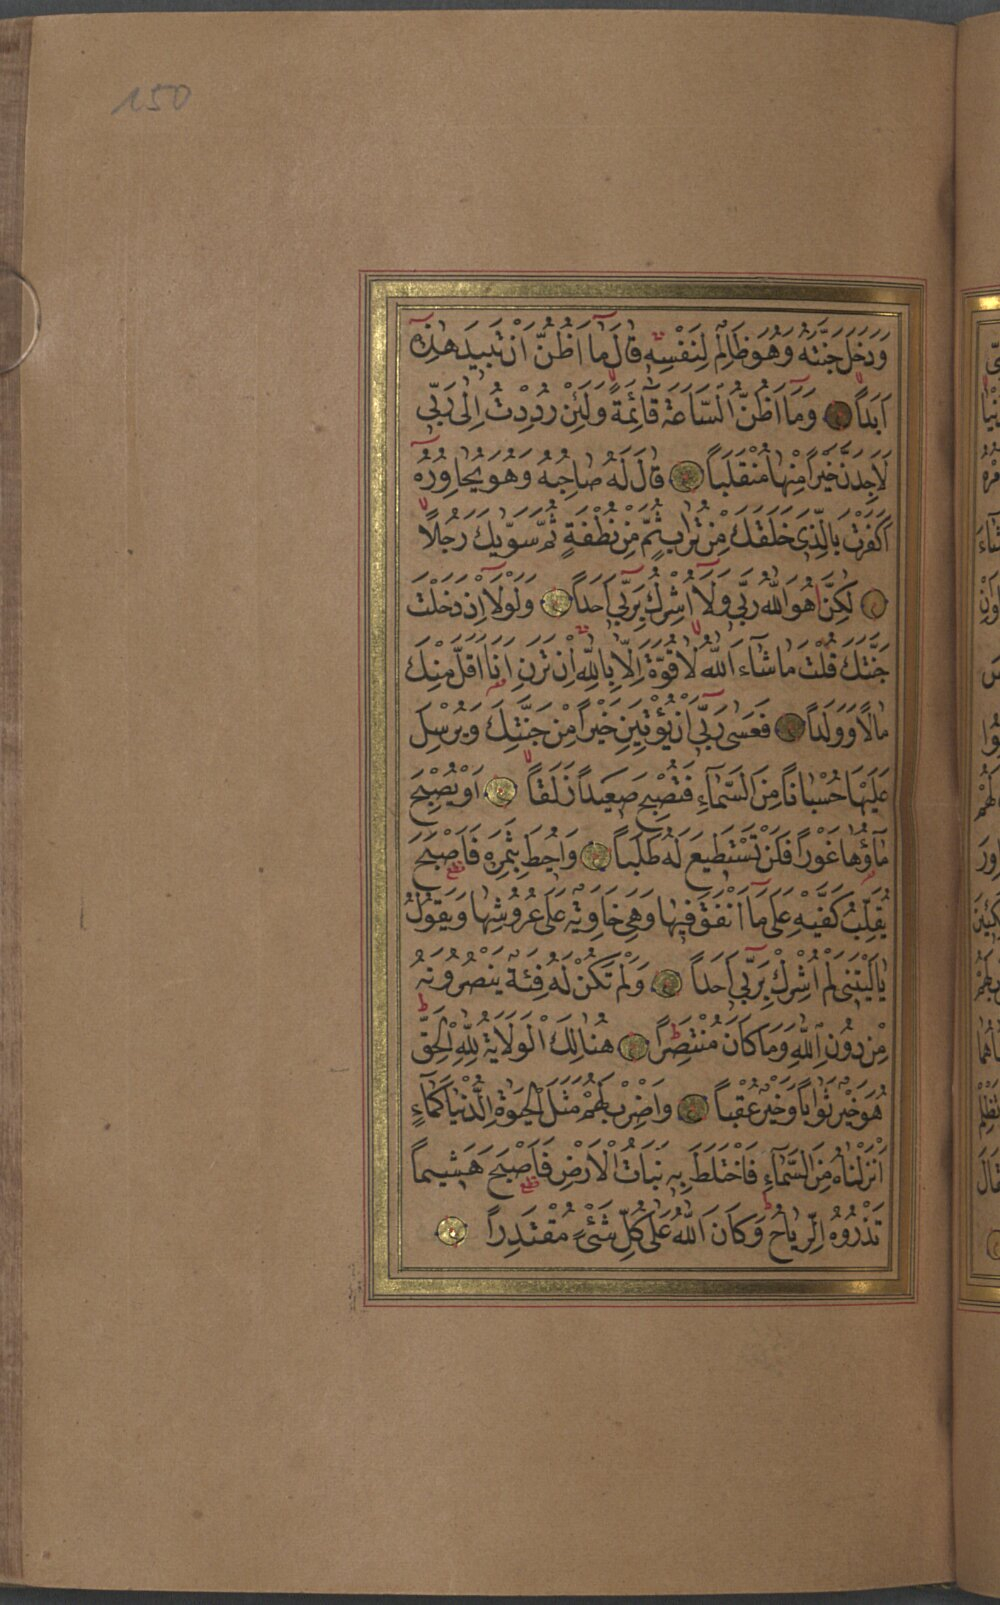 150
وَدَخَلَ جَنَّتَهُ وَهُوَ ظَالِمٌ لِنَفْسِهِ قَالَ مَا اَظُنُّ اَنْ تَبِيدَ هٰذِهِ
اَبَداً وَمَا اَظُنُّ السَّاعَةَ قَائِمَةً وَلَئِنْ رُدِدْتُ اِلٰى رَبّى
لَاَجِدَنَّ خَيْراً مِنْهَا مُنْقَلَباً قَالَ لَهُ صَاحِبُهُ وَهُوَ يُحَاوِرُهُ
اَكَفَرْتَ بِالَّذِى خَلَقَكَ مِنْ تُرَابٍ ثُمَّ مِنْ نُطْفَةٍ ثُمَّ سَوّٰيكَ رَجُلاً
لٰكِنَّا هُوَ اللّٰهُ رَبّى وَلَا اُشْرِكُ بِرَبّى اَحَداً وَلَوْلَا اِذْ دَخَلْتَ
جَنَّتَكَ قُلْتَ مَا شَاءَ اللّٰهُ لَا قُوَّةَ اِلَّا بِاللّٰهِ اِنْ تَرَنِ اَنَا اَقَلَّ مِنْكَ
مَالاً وَوَلَداً فَعَسٰى رَبّى اَنْ يُؤْتِيَنِ خَيْراً مِنْ جَنَّتِكَ وَيُرْسِلَ
عَلَيْهَا حُسْبَاناً مِنَ السَّمَاءِ فَتُصْبِحَ صَعِيداً زَلَقاً اَوْ يُصْبِحَ
مَاؤُهَا غَوْراً فَلَنْ تَسْتَطِيعَ لَهُ طَلَباً وَاُحِيطَ بِثَمَرِهِ فَاَصْبَحَ
يُقَلِّبُ كَفَّيْهِ عَلٰى مَا اَنْفَقَ فِيهَا وَهِىَ خَاوِيَةٌ عَلٰى عُرُوشِهَا وَيَقُولُ
يَالَيْتَنِى لَمْ اُشْرِكْ بِرَبّى اَحَداً وَلَمْ تَكُنْ لَهُ فِئَةٌ يَنْصُرُونَهُ
مِنْ دُونِ اللّٰهِ وَمَا كَانَ مُنْتَصِراً هُنَالِكَ الْوَلَايَةُ لِلّٰهِ الْحَقِّ
هُوَ خَيْرٌ ثَوَاباً وَخَيْرٌ عُقْباً وَاضْرِبْ لَهُمْ مَثَلَ الْحَيٰوةِ الدُّنْيَا كَمَاءٍ
اَنْزَلْنَاهُ مِنَ السَّمَاءِ فَاخْتَلَطَ بِهِ نَبَاتُ الْاَرْضِ فَاَصْبَحَ هَشِيماً
تَذْرُوهُ الرِّيَاحُ وَكَانَ اللّٰهُ عَلٰى كُلِّ شَىْءٍ مُقْتَدِراً